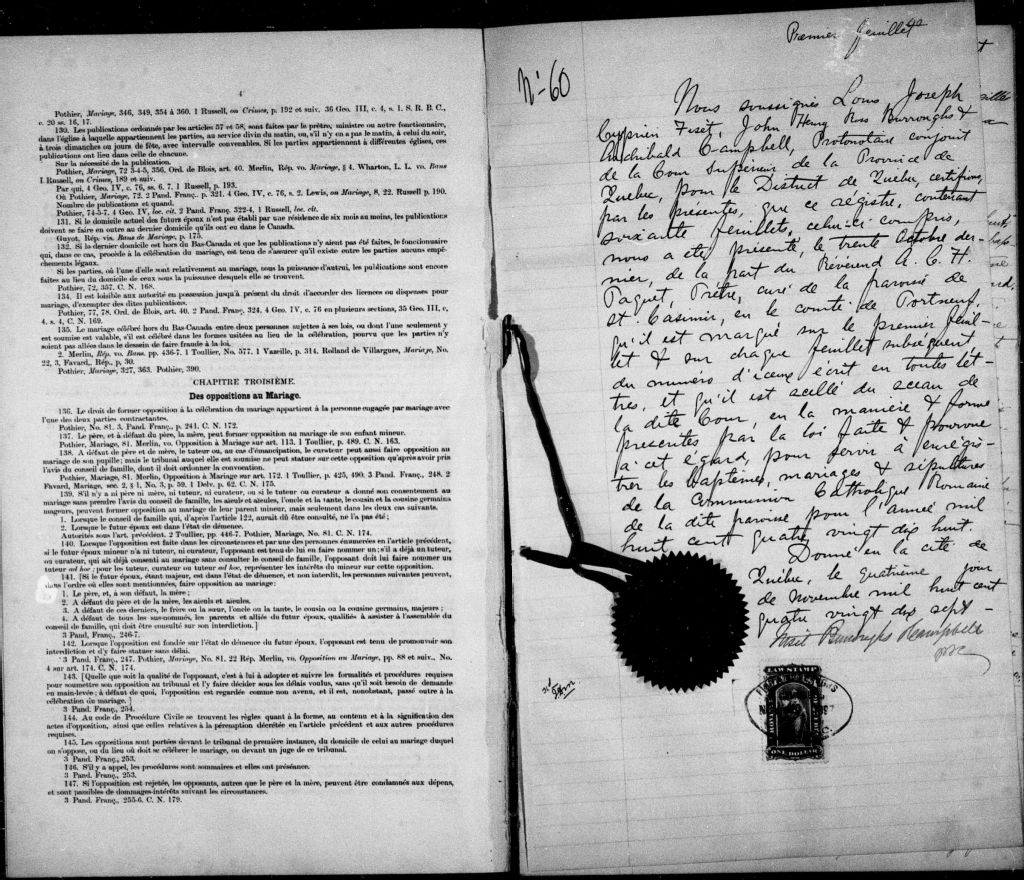 4
Pothier, Mariage, 346, 349, 354 à 360. 1 Russell, on Crimes, p. 192 et suiv. 36 Geo. III, c. 4, s. 1. S. R. B. C.,
c. 20 ss. 16, 17.
130. Les publications ordonnées par les articles 57 et 58, sont faites par le prêtre, ministre ou autre fonctionnaire,
dans l'église à laquelle appartiennent les parties, au service divin du matin, ou, s'il n'y en a pas le matin, à celui du soir,
à trois dimanches ou jours de fête, avec intervalle convenables. Si les parties appartiennent à différentes églises, ces
publications ont lieu dans celle de chacune.
Sur la nécessité de la publication.
Pothier, Mariage, 72 3-4-5, 356, Ord. de Blois, art. 40. Merlin, Rép. vo. Mariage, § 4. Wharton, L. L. vo. Bans
1 Russell, on Crimes, 189 et suiv.
Par qui, 4 Geo. IV, c. 76, ss. 6. 7. 1 Russell, p. 193.
Où Pothier, Mariage, 72. 2 Pand. Franç. p. 321. 4 Geo. IV, c. 76, s. 2. Lewis, on Mariage, 8, 22. Russell p. 190.
Nombre de publications et quand.
Pothier, 74-5-7. 4 Geo. IV, loc. cit. 2 Pand. Franç. 322-4, 1 Russell, loc. cit.
131. Si le domicile actuel des futurs époux n'est pas établi par une résidence de six mois au moins, les publications
doivent se faire en outre au dernier domicile qu'ils ont eu dans le Canada.
Guyot, Rép. vis. Bans de Mariage, p. 175.
132. Si la dernier domicile est hors du Bas-Canada et que les publications n'y aient pas été faites, le fonctionnaire
qui, dans ce cas, procède à la célébration du mariage, est tenu de s'assurer qu'il existe entre les parties aucuns empê-
chements légaux.
Si les parties, où l'une d'elle sont relativement au mariage, sous la puissance d'autrui, les publications sont encore
faites au lieu du domicile de ceux sous la puissance desquels elle se trouvent.
Pothier, 72, 357. C. N. 168.
134. Il est loisible aux autorité en possession jusqu'à présent du droit d'accorder des licences ou dispenses pour
mariage, d'exempter des dites publications.
Pothier, 77, 78. Ord. de Blois, art. 40. 2 Pand. Franç. 324. 4 Geo. IV, c. 76 en plusieurs sections, 35 Geo. III, c,
4, s. 4, C. N. 169.
135. Le mariage célébré hors du Bas-Canada entre deux personnes sujettes à ses lois, ou dont l'une seulement y
est soumise est valable, s'il est célébré dans les formes usitées au lieu de la célébration, pourvu que les parties n'y
soient pas allées dans le dessein de faire fraude à la loi.
2. Merlin, Rép. vo. Bans. pp. 436-7. 1 Toullier, No. 577. 1 Vazeille, p. 314. Rolland de Villargues, Mariage, No.
22, 3, Favard, Rép., p, 30.
Pothier, Mariage, 327, 363. Pothier, 390.
CHAPITRE TROISIÈME.
Des oppositions au Mariage.
136. Le droit de former opposition à la célébration du mariage appartient à la personne engagée par mariage avec
l'une des deux parties contractantes.
Pothier, No. 81. 3. Pand. Franç., p. 241. C. N. 172.
137. Le père, et à défaut du père, la mère, peut former opposition au mariage de son enfant mineur.
Pothier, Mariage, 81. Merlin, vo. Opposition à Mariage sur art. 113. 1 Toullier, p. 489. C. N. 163.
138. A défaut de père et de mère, le tuteur ou, au cas d'émancipation, le curateur peut aussi faire opposition au
mariage de son pupille; mais le tribunal auquel elle est soumise ne peut statuer sur cette opposition qu'après avoir pris
l'avis du conseil de famille, dont il doit ordonner la convocation.
Pothier, Mariage, 81. Merlin, Opposition à Mariage sur art. 172. 1 Toullier, p. 425, 490. 3 Pand. Franç., 248. 2
Favard, Mariage, sec. 2, § 1, No. 3, p. 59. 1 Delv. p. 62. C. N. 175.
139. S'il n'y a ni père ni mère, ni tuteur, ni curateur, ou si le tuteur ou curateur a donné son consentement au
mariage sans prendre l'avis du conseil de famille, les aïeuls et aïeules, l'oncle et la tante, le cousin et la cousine germains
mageurs, peuvent former opposition au mariage de leur parent mineur, mais seulement dans les deux cas suivants.
1. Lorsque le conseil de famille qui, d'après l'article 122, aurait dû être consulté, ne l'a pas été;
2. Lorsque le futur époux est dans l'état de démence.
Autorités sous l'art. précédent. 2 Toullier, pp. 446-7. Pothier, Mariage, No. 81. C. N. 174.
140. Lorsque l'opposition est faite dans les circonstances et par une des personnes énumérées en l'article précédent,
si le futur époux mineur n'a ni tuteur, ni curateur, l'opposant est tenu de lui en faire nommer un; s'il a déjà un tuteur,
ou curateur, qui ait déjà consenti au mariage sans consulter le conseil de famille, l'opposant doit lui faire nommer un
tuteur ad hoc; pour les tuteur, curateur ou tuteur ad hoc, représenter les intérêts du mineur sur cette opposition.
141. [Si le futur époux, étant majeur, est dans l'état de démence, et non interdit, les personnes suivantes peuvent,
dans l'ordre où elles sont mentionnées, faire opposition au mariage:
1. Le père, et, à son défaut, la mère;
2. A défaut du père et de la mère, les aïeuls et aïeules.
3. A défaut de ces derniers, le frère ou la sœur, l'oncle ou la tante, le cousin ou la cousine germains, majeurs;
4. A défaut de tous les sus-nommés, les parents et alliés du futur époux, qualifiés à assister à l'assemblée du
conseil de famille, qui doit être consulté sur son interdiction.]
3 Pand. Franç., 246-7.
142. Lorsque l'opposition est fondée sur l'état de démence du futur époux, l'opposant est tenu de promouvoir son
interdiction et d'y faire statuer sans délai.
3 Pand. Franç., 247. Pothier, Mariage, No. 81. 22 Rép. Merlin, vo. Opposition au Mariage, pp. 88 et suiv.. No.
4 sur art. 174. C. N. 174.
143. [Quelque que soit la qualité de l'opposant, c'est à lui à adopter et suivre les formalités et procédures requises
pour soumettre son opposition au tribunal et l'y faire décider sous les délais voulus, sans qu'il soit besoin de demande
en main-levée; à défaut de quoi, l'opposition est regardée comme non avenu, et il est, nonobstant, passé outre à la
célébration du mariage.]
3 Pand. Franç., 254.
144. Au code de Procédure Civile se trouvent les règles quant à la forme, au contenu et à la signification des
actes d'opposition, ainsi que celles relatives à la péremption décrétée en l'article précédent et aux autres procédures
requises.
145. Les oppositions sont portées devant le tribunal de première instance, du domicile de celui au mariage duquel
on s'oppose, ou du lieu où doit se célébrer le mariage, ou devant un juge de ce tribunal.
3 Pand. Franç., 253.
146. S'il y a appel, les procédures sont sommaires et elles ont préséance.
3 Pand. Franç., 253.
147. Si l'opposition est rejetée, les opposants, autres que le père et la mère, peuvent être condamnés aux dépens,
et sont passibles de dommages-intérêts suivant les circonstances.
3 Pand. Franç., 255-6. C. N. 179.
Premier feuillet
No 60
Nous soussignés Louis Joseph
Cyprien Fiset, John Henry Ross Burroughs &
Archibald Campbell, Protonotaire conjoint
de la Cour Supérieure de la Province de
Québec, pour le District de Québec, certifions
par les présentes, que ce régistre, contenant
soixante feuillets, celui-ci compris,
nous a été présenté, le trente Octobre der-
nier, de la part du Révérend A. C. H.
Paquet, Prêtre, curé de la paroisse de
St. Casimir, en le comté de Portneuf.
qu'il est marqué sur le premier feuil-
let & sur chaque feuillet subséquent
du numéro d'iceux écrit en toutes let-
tres, et qu'il est scellé du sceau de
la dite Cour, en la manière & forme
presentes par la loi faite & pourvue
à cet égard, pour servir à enrégis-
trer les baptêmes, mariages & sépultures
de la Communion Catholique Romaine
de la dite paroisse pour l'année mil
huit cent quatre vingt dix huit.
Donné en la cité de
Québec, le quatrième jour
de novembre mil huit cent
quatre vingt dix sept -
Fiset Burroughs & Campbell
PSC
LAW STAMP
ONE DOLLAR